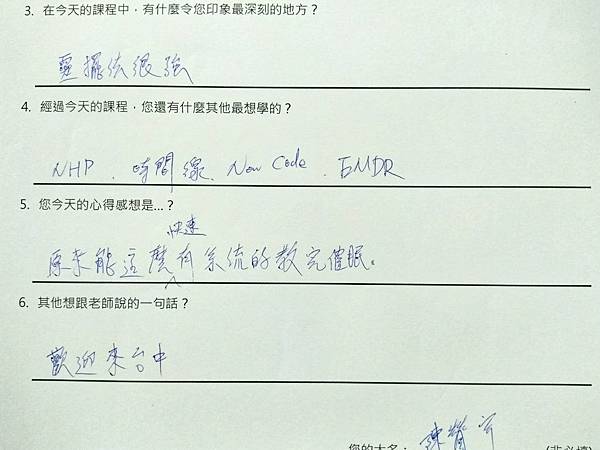 3. 在今天的課程中，有什麼令您印象最深刻的地方？
靈擺依很強
4. 經過今天的課程，您還有什麼其他最想學的？
NHP、時間線、New Code、EMDR
5. 您今天的心得感想是...？
快速
原來能這麼有系統的教完催眠。
6. 其他想跟老師說的一句話？
歡迎來台中
您的大名：陳
(非必填)